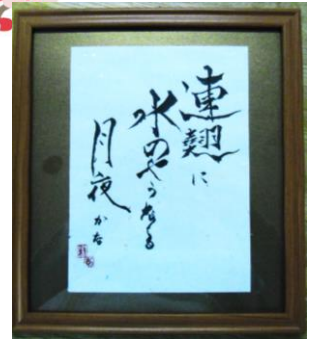 連翹に
水のやうなる
月夜かな